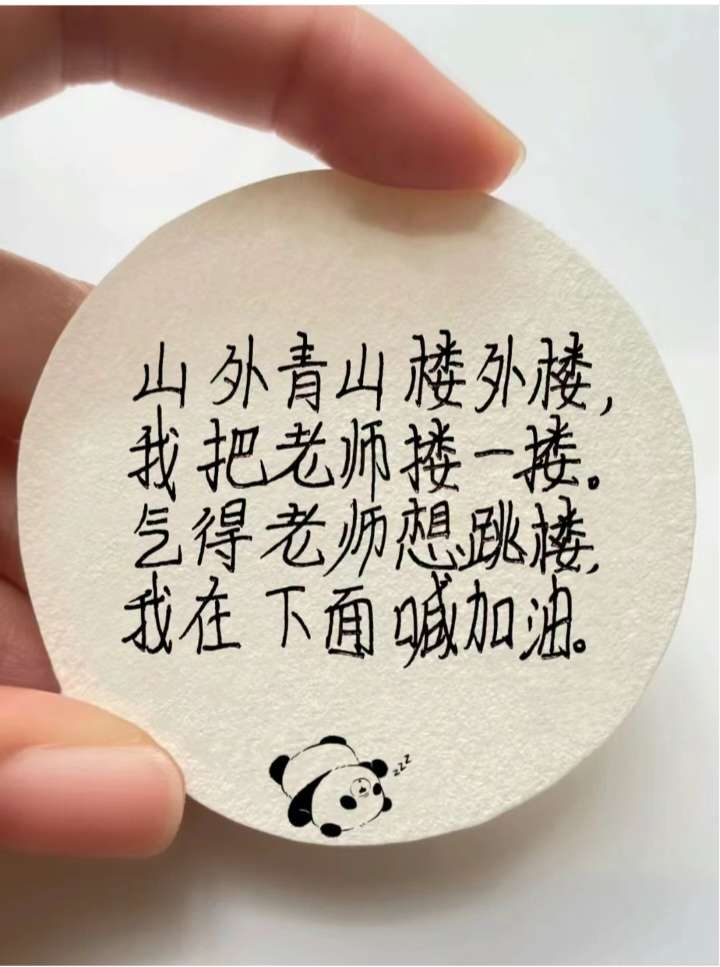 山外青山楼外楼,
我把老师搂一搂。
气得老师想跳楼,
我在下面喊加油。
zzz